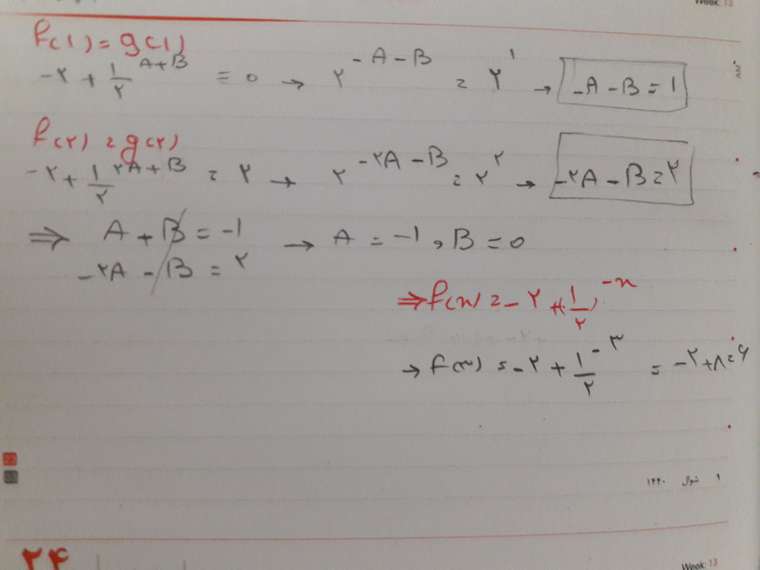 Week 13
f(1) = g(1)
-۲ + (1/۲)^(A+B) = 0 → ۲^(-A-B) = ۲^1 → -A-B = 1
f(۲) = g(۲)
-۲ + 1/۲^(۲A+B) = ۲ → ۲^(-۲A-B) = ۲^۲ → -۲A-B = ۲
⇒ A + B = -1 → A = -1 , B = 0
-۲A - B = ۲
⇒ f(x) = -۲ + (1/۲)^(-x)
→ f(۳) = -۲ + 1/۲^(-۳) = -۲+۸=۶
۱ شوال ۱۴۴۰
۲۴
Week 13